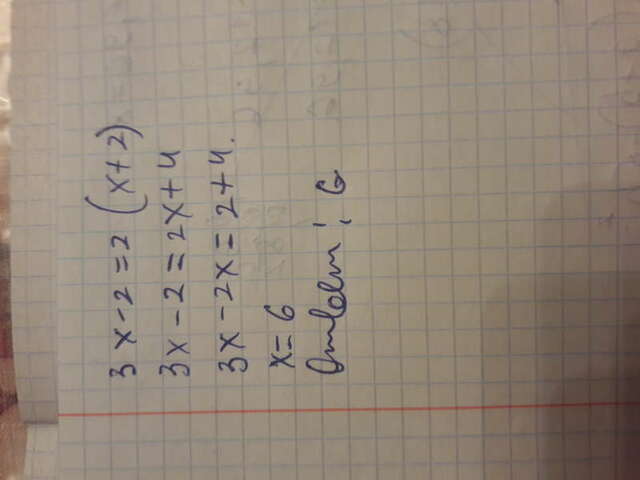 3x-2=2(x+2)
3x-2=2x+4
3x-2x=2+4.
x=6
Ответ: 6